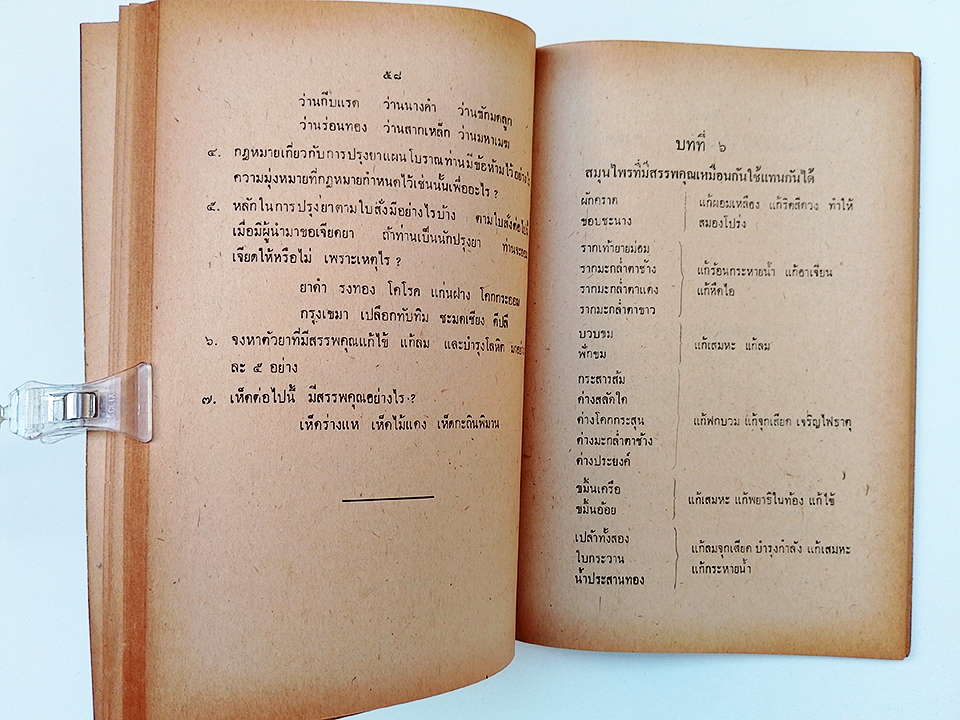 ๕๘
ว่านกีบแรด ว่านนางคำ ว่านชักมดลูก
ว่านร่อนทอง ว่านสากเหล็ก ว่านมหาเมฆ
๔. กฎหมายเกี่ยวกับการปรุงยาแผนโบราณท่านมีข้อห้ามไว้
ความมุ่งหมายที่กฎหมายกำหนดไว้เช่นนั้นเพื่ออะไร ?
๕. หลักในการปรุงยาตามใบสั่งมีอย่างไรบ้าง ตามใบสั่ง
เมื่อมีผู้นำมาขอเจียดยา ถ้าท่านเป็นนักปรุงยา
เจียดให้หรือไม่ เพราะเหตุไร ?
ยาดำ รงทอง โคโรค แก่นฝาง โคกกระออม
กรุงเขมา เปลือกทับทิม ชะมดเชียง ดีปลี
๖. จงหาตัวยาที่มีสรรพคุณแก้ไข้ แก้ลม และบำรุงโลหิต
ละ ๕ อย่าง
๗. เห็ดต่อไปนี้ มีสรรพคุณอย่างไร ?
เห็ดร่างแห เห็ดไม้แดง เห็ดกะถินพิมาน
บทที่ ๖
สมุนไพรที่มีสรรพคุณเหมือนกันใช้แทนกันได้
ผักคราด แก้ผอมเหลือง แก้ริดสีดวง ทำให้
ขอบชะนาง สมองโปร่ง
รากเท้ายายม่อม
รากมะกล่ำตาช้าง แก้ร้อนกระหายน้ำ แก้อาเจียน
รากมะกล่ำตาแดง แก้หืดไอ
รากมะกล่ำตาขาว
บวบขม แก้เสมหะ แก้ลม
ฟักขม
กระสารส้ม
ด่างสลัดใด
ด่างโคกกระสุน แก้ฟกบวม แก้จุกเสียด เจริญไฟธาตุ
ด่างมะกล่ำตาช้าง
ด่างประยงค์
ขมิ้นเครือ แก้เสมหะ แก้พยาธิในท้อง แก้ไข้
ขมิ้นอ้อย
เปล้าทั้งสอง แก้ลมจุกเสียด บำรุงกำลัง แก้เสมหะ
ใบกระวาน แก้กระหายน้ำ
น้ำประสานทอง